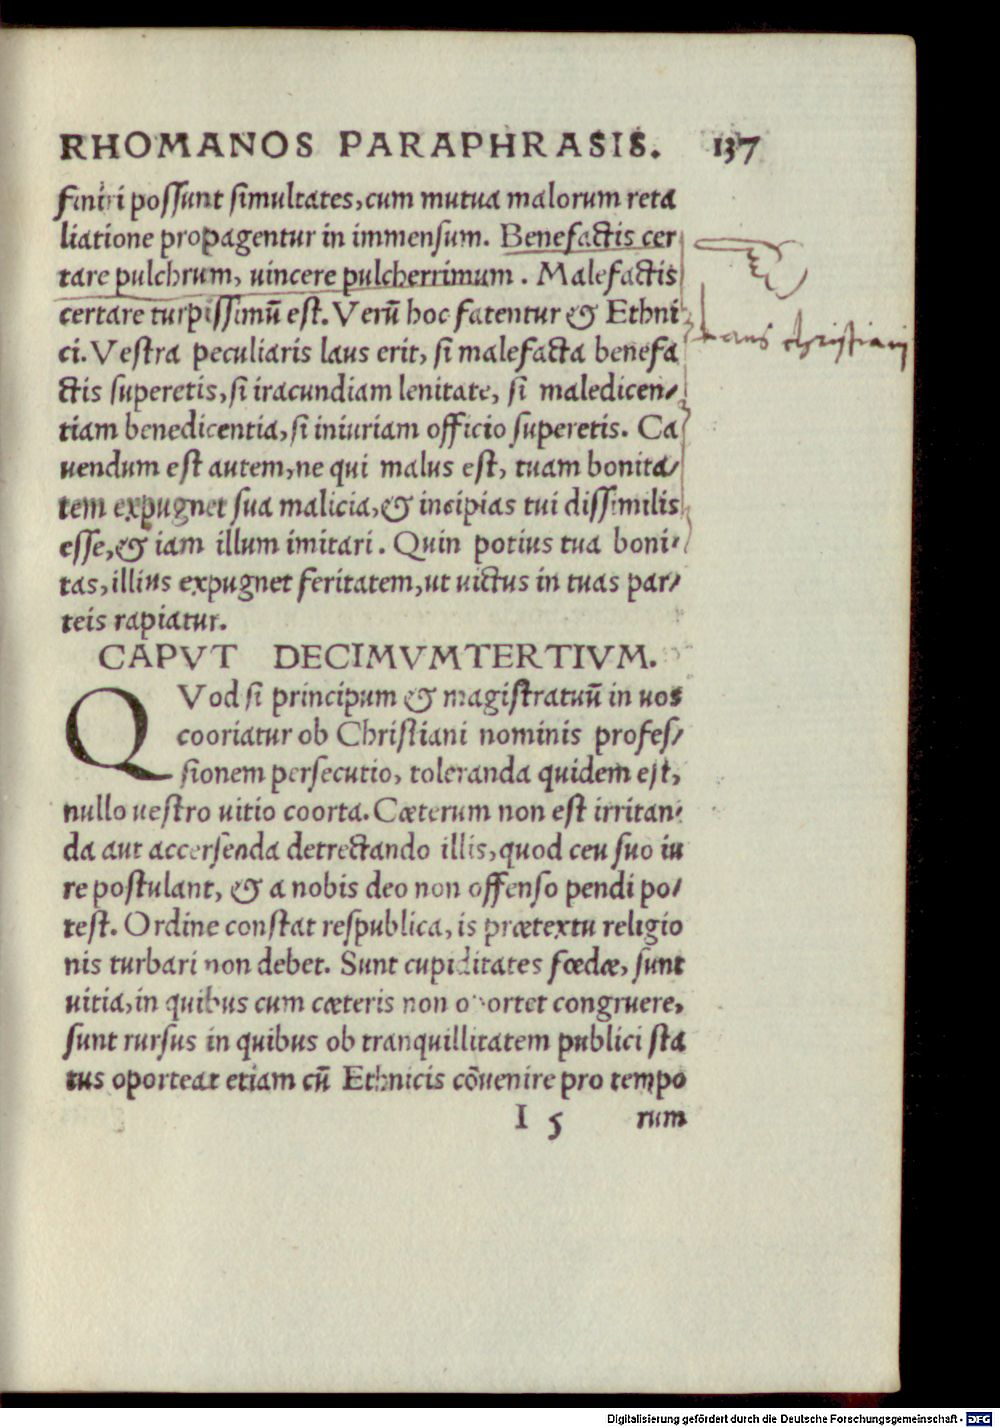 RHOMANOS PARAPHRASIS. 137
finiri possunt simultates, cum mutua malorum reta
liatione propagentur in immensum. Benefactis cer
tare pulchrum, uincere pulcherrimum. Malefactis
certare turpissimū est. Verū hoc fatentur & Ethni
ci. Vestra peculiaris laus erit, si malefacta benefa
ctis superetis, si iracundiam lenitate, si maledicen-
tiam benedicentia, si iniuriam officio superetis. Ca
uendum est autem, ne qui malus est, tuam bonita-
tem expugnet sua malicia, & incipias tui dissimilis
esse, & iam illum imitari. Quin potius tua boni-
tas, illius expugnet feritatem, ut uictus in tuas par-
teis rapiatur.
laus christiani
CAPVT DECIMVMTERTIVM.
QVod si principum & magistratuū in uos
cooriatur ob Christiani nominis profes-
sionem persecutio, toleranda quidem est,
nullo uestro uitio coorta. Cæterum non est irritan-
da aut accersenda detrectando illis, quod ceu suo iu
re postulant, & a nobis deo non offenso pendi po-
test. Ordine constat respublica, is prætextu religio
nis turbari non debet. Sunt cupiditates fœdæ, sunt
uitia, in quibus cum cæteris non oportet congruere,
sunt rursus in quibus ob tranquillitatem publici sta
tus oporteat etiam cū Ethnicis cōuenire pro tempo
I 5 rum
Digitalisierung gefördert durch die Deutsche Forschungsgemeinschaft - DFG